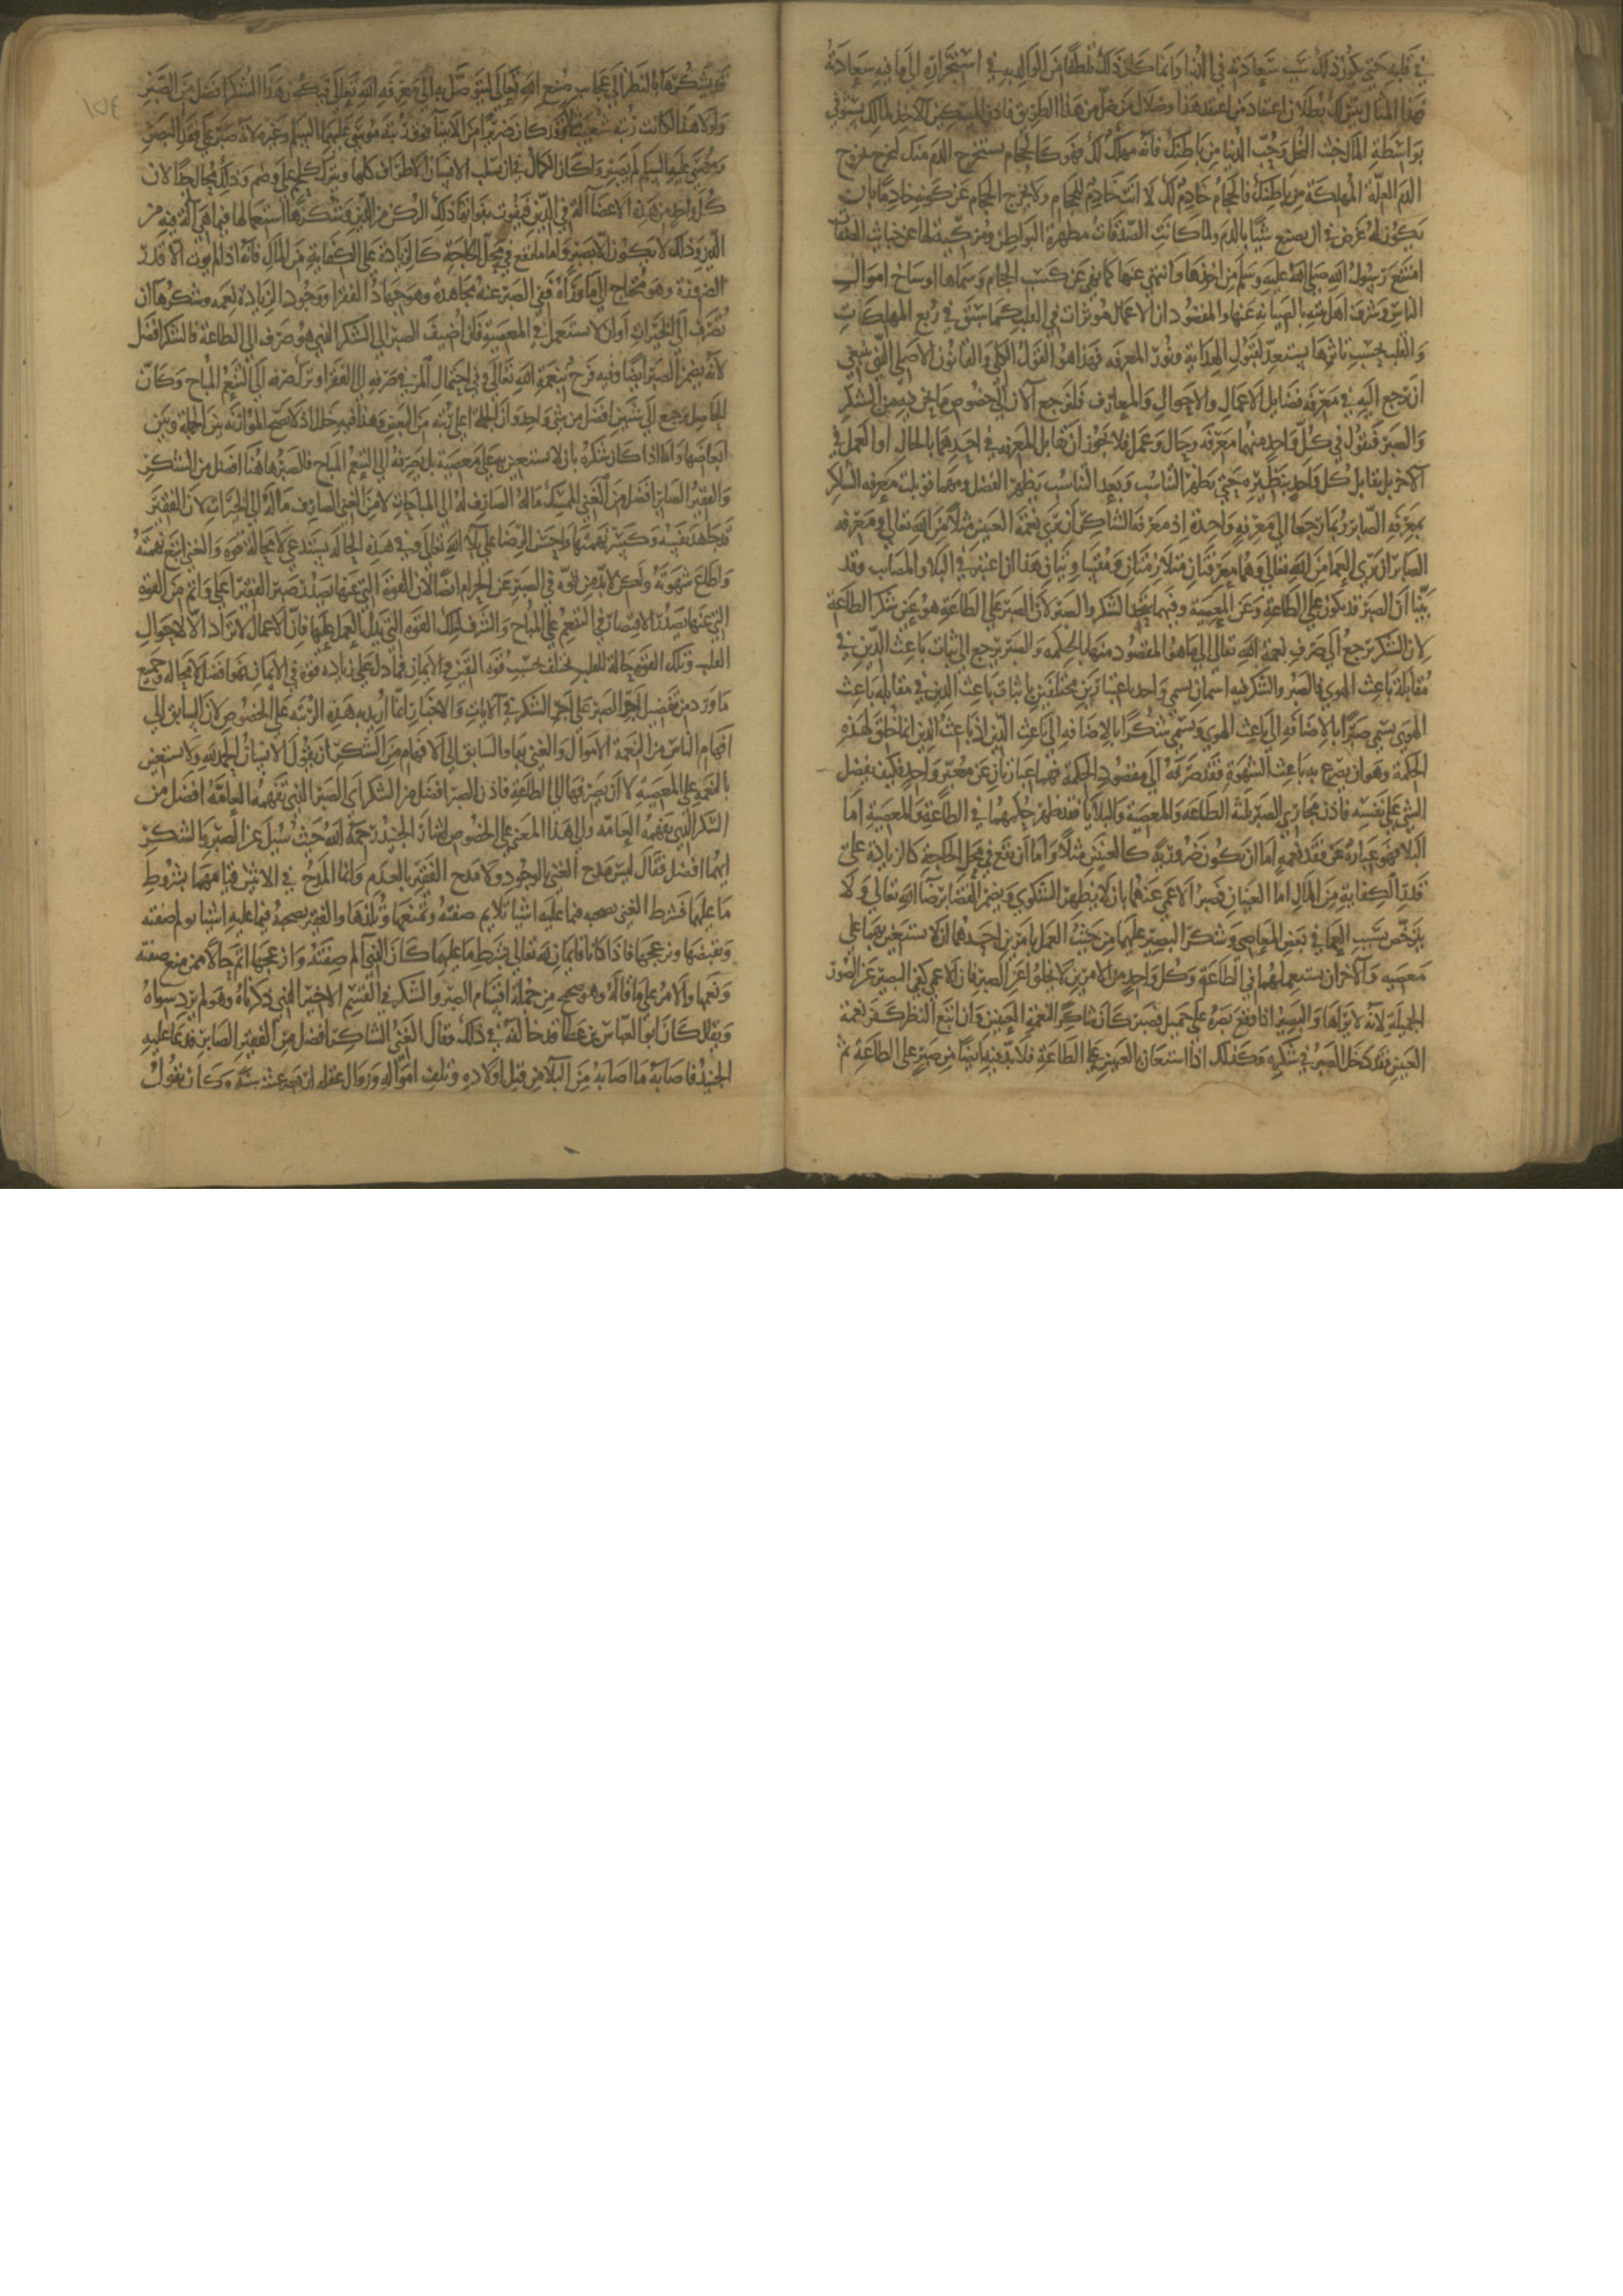 في قلبه حتى يكون ذلك سبب سعادته في الدنيا وانما كان ذلك تلطفا من الوالد به في استجراره الى ما فيه سعادته
فهذا المثال يبين لك بطلان اعتقاد من اعتقد هذا وضلال من ضل من هذا الطريق فاذن المسكين الآخذ لمالك يستوفي
بواسطة المال خبث البخل وحب الدنيا من باطنك فانه مهلك لك فهو كالحجام يستخرج الدم منك ليخرج بخروج
الدم العلة المهلكة من باطنك فالحجام خادم لك لا انت خادم للحجام ولا يخرج الحجام عن كونه خادما بان
يكون له غرض في ان يصنع شيئا بالدم ولما كانت الصدقات مطهرة للبواطن ومزكية لها عن خبائث الصفات
امتنع رسول الله صلى الله عليه وسلم من اخذها وانتهى عنها كما نهى عن كسب الحجام وسماها اوساخ اموال
الناس وشرف اهل بيته بالصيانة عنها والمقصود ان الاعمال مؤثرات في القلب كما سبق في ربع المهلكات
والقلب بحسب تأثرها يستعد لقبول الهداية ونور المعرفة فهذا هو القول الكلي والقانون الاصلي الذي ينبغي
ان يرجع اليه في معرفة فضايل الاعمال والاحوال والمعارف فلنرجع الآن الى خصوص ما نحن فيه من الشكر
والصبر فنقول في كل واحد منهما معرفة وحال وعمل فلا يجوز ان تقابل المعرفة في احدهما بالحال او العمل في
الآخر بل يقابل كل واحد بنظيره حتى يظهر التناسب وبعد التناسب يظهر الفضل ومهما قوبلت معرفة الشاكر
بمعرفة الصابر ربما رجعا الى معرفة واحدة اذ معرفة الشاكر ان يرى نعمة العينين مثلا من الله تعالى ومعرفة
الصابر ان يرى العمى من الله تعالى وهما معرفتان متلازمتان ومتساويتان هذا ان اعتبرت في البلاء والمصائب وقد
بينا ان الصبر قد يكون على الطاعة وعن المعصية وفيهما يتحد الشكر والصبر لان الصبر على الطاعة هو عين شكر الطاعة
لان الشكر يرجع الى صرف نعمة الله تعالى الى ما هو المقصود منها بالحكمة والصبر يرجع الى ثبات باعث الدين في
مقابلة باعث الهوى فالصبر والشكر فيه اسمان لمسمى واحد باعتبارين مختلفين فاثبات باعث الدين في مقابلة باعث
الهوى يسمى صبرا بالاضافة الى باعث الهوى ويسمى شكرا بالاضافة الى باعث الدين اذ باعث الدين انما خلق لهذه
الحكمة وهو ان يصرع به باعث الشهوة فقد صرفه الى مقصود الحكمة فهما عبارتان عن معبر واحد فكيف يفضل
الشي على نفسه فاذن مجاري الصبر ثلثة الطاعة والمعصية والبلايا فقد ظهر حكمهما في الطاعة والمعصية اما
البلا فهو عبارة عن فقد نعمة اما ان يكون ضرورية كالعينين مثلا واما ان تقع في محل الحاجة كالزيادة على
قدر الكفاية من المال اما العينان فصبر الاعمى عنهما بان لا يظهر الشكوى ويضمر القضا برضا الله تعالى ولا
يترخص بسبب العما في بعض المعاصي وشكر البصير عليهما من حيث العمل بامرين احدهما ان لا يستعين بهما على
معصية والآخر ان يستعملهما في الطاعة وكل واحد من الامرين لا يخلوا عن الصبر فان الاعمى كفى البصير عن الصور
الجميلة لانه لا يراها والبصير اذا وقع بصره على جميل فصبر كان شاكرا لنعمة العينين وان اتبع النظر كفر نعمة
العينين فقد دخل الصبر في شكره وكذلك اذا استعان بالعينين على الطاعة فلا بد فيه ايضا من صبر على الطاعة ثم
قد يشكرها بالنظر الى عجائب صنع الله تعالى ليتوصل به الى معرفة الله تعالى فيكون هذا الشكر افضل من الصبر
ولولا هذا لكانت رتبة شعيب مثلا وقد كان ضريرا من الانبيا فوق رتبة موسى عليهما السلم وغيره لانه صبر على فقد البصر
وموسى عليه السلم لم يصبر ولكان الكمال في ان يسلب الانسان الاطراف كلها ويترك كلحم على وضم وذلك محال جدا لان
كل واحد من هذه الاعضا آلة في الدين فيفوت بفواتها ذلك الركن من الدين وشكرها استعمالها فيما هي آلة فيه من
الدين وذلك لا يكون الا بصبر واما ما يقع في محل الحاجة كالزيادة على الكفاية من المال فانه اذا لم يؤت الا قدر
الضرورة وهو محتاج الى ما وراه ففي الصبر عنه مجاهدة وهو جهاد الفقرا ووجود الزيادة نعمة وشكرها ان
تصرف الى الخيرات او ان لا تستعمل في المعصية فان اضيف الصبر الى الشكر الذي هو صرف الى الطاعة فالشكر افضل
لانه يضمن الصبر ايضا وفيه فرح بنعمة الله تعالى وفيه احتمال الم في صرفه الى الفقرا وترك صرفه الى التنعم المباح وكان
الحاصل يرجع الى شيئين افضل من شي واحد وان الجملة اعلى رتبة من البعض وهذا فيه خلل اذ لا تصح الموازنة بين الجملة وبين
ابعاضها واما اذا كان شكره بان لا يستعين به على معصية بل يصرفه الى التنعم المباح فالصبر هاهنا افضل من الشكر
والفقير الصابر افضل من الغني الممسك ماله الصارف له الى المباحات لا من الغني الصارف ماله الى الخيرات لان الفقير
قد جاهد نفسه وكسر نهمتها واحسن الرضا على بلا الله تعالى وفي هذه الحالة يستدعي لا محالة قوة والغني اتبع نهمته
واطاع شهوته ولكن لا بد من قوة في الصبر عن الحرام ايضا الا ان القوة التي عنها يصدر صبر الفقير اعلى واتم من القوة
التي عنها يصدر الاقتصار في التنعم على المباح والشرف لتلك القوة التي يدل العمل عليها فان الاعمال لا تراد الا لاحوال
القلب وتلك القوة حالة للقلب تختلف بحسب قوة اليقين والايمان فما دل على زيادة قوة في الايمان فهو افضل لا محالة وجميع
ما ورد من تفضيل اجر الصبر على اجر الشكر في الآيات والاخبار انما اريد به هذه الرتبة على الخصوص لان السابق الى
افهام الناس من النعمة الاموال والغنى بها والسابق الى الافهام من الشكر ان يقول الانسان الحمد لله ولا يستعين
بالنعمة على المعصية لا ان يصرفها الى الطاعة فاذن الصبر افضل من الشكر اي الصبر الذي تفهمه العامة افضل من
الشكر الذي تفهمه العامة والى هذا المعنى على الخصوص اشار الجنيد رحمة الله حيث سئل عن الصبر والشكر
ايهما افضل فقال ليس مدح الغني بالوجود ولا مدح الفقير بالعدم وانما المدح في الاثنين قيامهما بشروط
ما عليهما فشرط الغني يصحبه فيما عليه اشيا تلايم صفته وتمتعها وتلذها والفقير يصحبه فيما عليه اشيا تولم صفته
وتقبضها وتزعجها فاذا كانا قائمان لله تعالى بشرط ما عليهما كان الذي آلم صفته وازعجها اتم حالا ممن متع صفته
ونعمها والامر على ما قاله وهو صحيح من جملة اقسام الصبر والشكر في القسم الاخير الذي ذكرناه وهو لم يرد سواه
ويقال كان ابو العباس بن عطا قد خالفه في ذلك وقال الغني الشاكر افضل من الفقير الصابر فدعا عليه
الجنيد فاصابه ما اصابه من البلا من قتل اولاده وتلف امواله وزوال عقله اربع عشرة سنة وكان يقول